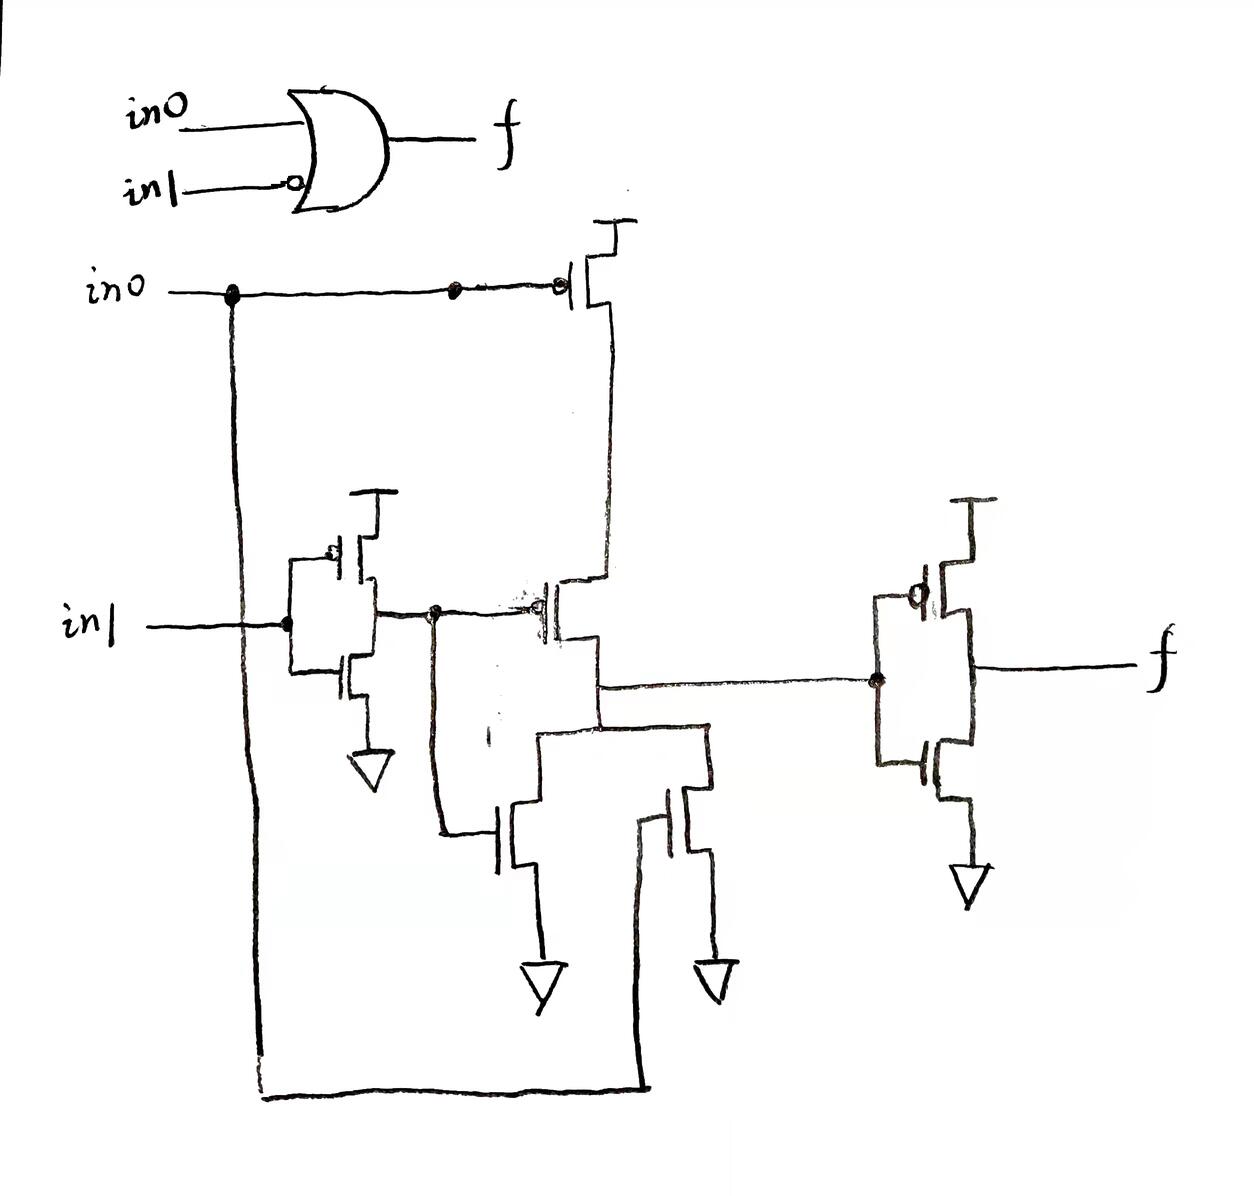 in0
f
in1
in0
in1
f